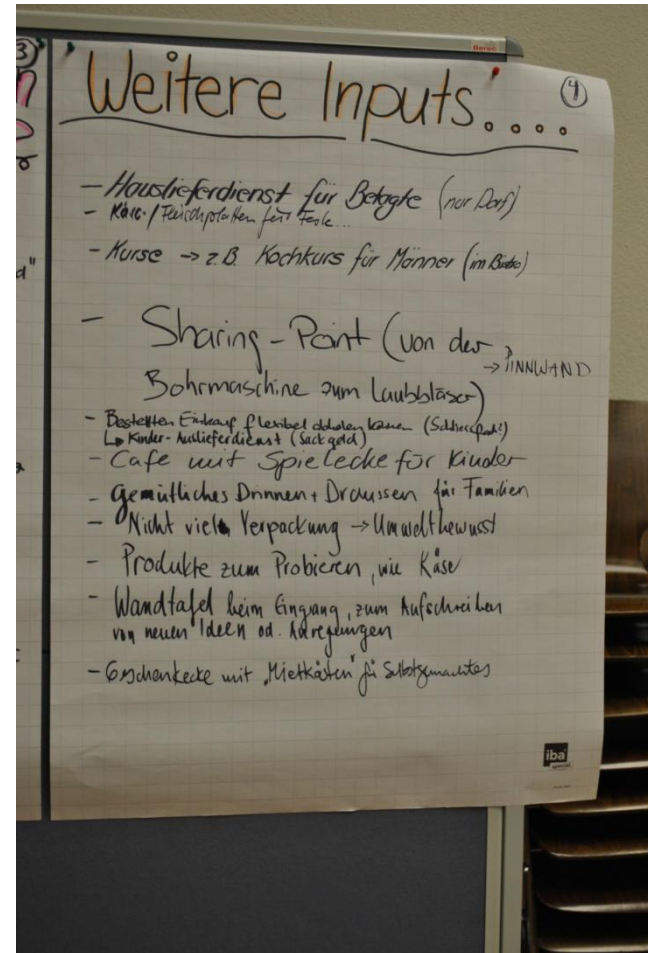 Berec
3
d"
Weitere Inputs....
4
- Hauslieferdienst für Betagte (nur Dorf)
- Käse-/Fleischplatten für Feste...
- Kurse → z.B. Kochkurs für Männer (im Bistro)
- Sharing-Point (von der
→ PINNWAND
Bohrmaschine zum Laubbläser)
- Bestellten Einkauf flexibel abholen können
↳ Kinder-Auslieferdienst (Sackgeld)
- Cafe mit Spielecke für Kinder
- Gemütliches Drinnen + Draussen für Familien
- Nicht viel Verpackung → Umweltbewusst
- Produkte zum Probieren, wie Käse
- Wandtafel beim Eingang, zum Aufschreiben
von neuen Ideen od. Anregungen
- Geschenkecke mit „Mietkästen" für Selbstgemachtes
iba